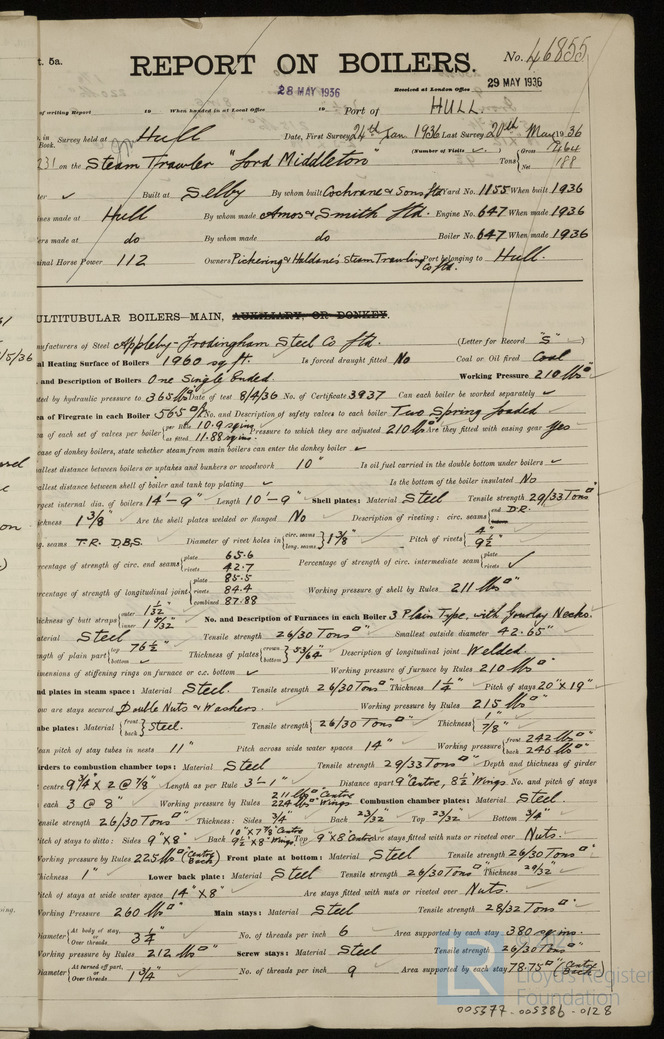 t. 5a.
REPORT ON BOILERS.
No. 46855
28 MAY 1936
Received at London Office 29 MAY 1936
of writing Report 19 When handed in at Local Office 19 Port of HULL
in Book. Survey held at Hull Date, First Survey 24th Jan 1936 Last Survey 20th May 1936
231 on the Steam Trawler "Lord Middleton" (Number of Visits ) Tons Gross 464 Net 188
Built at Selby By whom built Cochrane & Sons Ltd Yard No. 1155 When built 1936
ines made at Hull By whom made Amos & Smith Ltd. Engine No. 647 When made 1936
ers made at do By whom made do Boiler No. 647 When made 1936
inal Horse Power 112 Owners Pickering & Haldane's Steam Trawling Co Ltd. Port belonging to Hull.
ULTITUBULAR BOILERS—MAIN, AUXILIARY, OR DONKEY.
nufacturers of Steel Appleby-Frodingham Steel Co Ltd. (Letter for Record "S" )
al Heating Surface of Boilers 1960 sq ft. Is forced draught fitted No Coal or Oil fired Coal
and Description of Boilers One Single Ended. Working Pressure 210 lbs□"
ted by hydraulic pressure to 365 lbs□" Date of test 8/4/36 No. of Certificate 3937 Can each boiler be worked separately ✓
ea of Firegrate in each Boiler 56.5 □ft No. and Description of safety valves to each boiler Two Spring loaded
ea of each set of valves per boiler per Rule 10.9 sq ins. as fitted 11.88 sq ins. Pressure to which they are adjusted 210 lbs□" Are they fitted with easing gear Yes
case of donkey boilers, state whether steam from main boilers can enter the donkey boiler ✓
allest distance between boilers or uptakes and bunkers or woodwork 10" Is oil fuel carried in the double bottom under boilers ✓
allest distance between shell of boiler and tank top plating ✓ Is the bottom of the boiler insulated No
rgest internal dia. of boilers 14'-9" Length 10'-9" Shell plates: Material Steel Tensile strength 29/33 Tons□"
ickness 1 3/8" Are the shell plates welded or flanged No Description of riveting: circ. seams end D.R.
g. seams T.R. D.B.S. Diameter of rivet holes in circ. seams long. seams 1 3/8" Pitch of rivets 4" 9 1/2"
rcentage of strength of circ. end seams plate 65.6 rivets 42.7 Percentage of strength of circ. intermediate seam plate rivets ✓
rcentage of strength of longitudinal joint plate 85.5 rivets 84.4 combined 87.88 Working pressure of shell by Rules 211 lbs□"
ickness of butt straps outer 1 1/32" inner 1 5/32" No. and Description of Furnaces in each Boiler 3 Plain Type, with Gourlay Necks.
aterial Steel Tensile strength 26/30 Tons□" Smallest outside diameter 42.65"
ngth of plain part top 76 1/2" bottom ✓ Thickness of plates crown bottom 53/64" Description of longitudinal joint Welded.
imensions of stiffening rings on furnace or c.c. bottom ✓ Working pressure of furnace by Rules 210 lbs□"
nd plates in steam space: Material Steel. Tensile strength 26/30 Tons□" Thickness 1 1/4" Pitch of stays 20" X 19"
ow are stays secured Double Nuts & Washers. Working pressure by Rules 215 lbs□"
ube plates: Material front back Steel. Tensile strength 26/30 Tons□" Thickness 1" 7/8"
ean pitch of stay tubes in nests 11" Pitch across wide water spaces 14" Working pressure front 242 lbs□" back 246 lbs□"
irders to combustion chamber tops: Material Steel Tensile strength 29/33 Tons□" Depth and thickness of girder
centre 9 3/4" X 2 @ 7/8" Length as per Rule 3'-1" Distance apart 9" Centre, 8 1/2" Wings. No. and pitch of stays
each 3 @ 8" Working pressure by Rules 211 lbs□" Centre 224 lbs□" Wings Combustion chamber plates: Material Steel.
ensile strength 26/30 Tons□" Thickness: Sides 3/4" Back 23/32" Top 23/32" Bottom 3/4"
itch of stays to ditto: Sides 9" X 8" Back 10" X 7 7/8" Centre 9 1/2" X 8" Wings Top 9" X 8" Centre Are stays fitted with nuts or riveted over Nuts.
orking pressure by Rules 225 lbs□" (Centre Back) Front plate at bottom: Material Steel Tensile strength 26/30 Tons□"
hickness 1" Lower back plate: Material Steel Tensile strength 26/30 Tons□" Thickness 29/32"
itch of stays at wide water space 14" X 8" Are stays fitted with nuts or riveted over Nuts.
orking Pressure 260 lbs□" Main stays: Material Steel Tensile strength 28/32 Tons□"
iameter At body of stay, or Over threads 3 1/4" No. of threads per inch 6 Area supported by each stay 380 sq ins.
orking pressure by Rules 212 lbs□" Screw stays: Material Steel Tensile strength 26/30 Tons□"
iameter At turned off part, or Over threads 1 3/4" No. of threads per inch 9 Area supported by each stay 78.75□" (Centre Back)
LR Lloyd's Register Foundation
005377-005386-0128